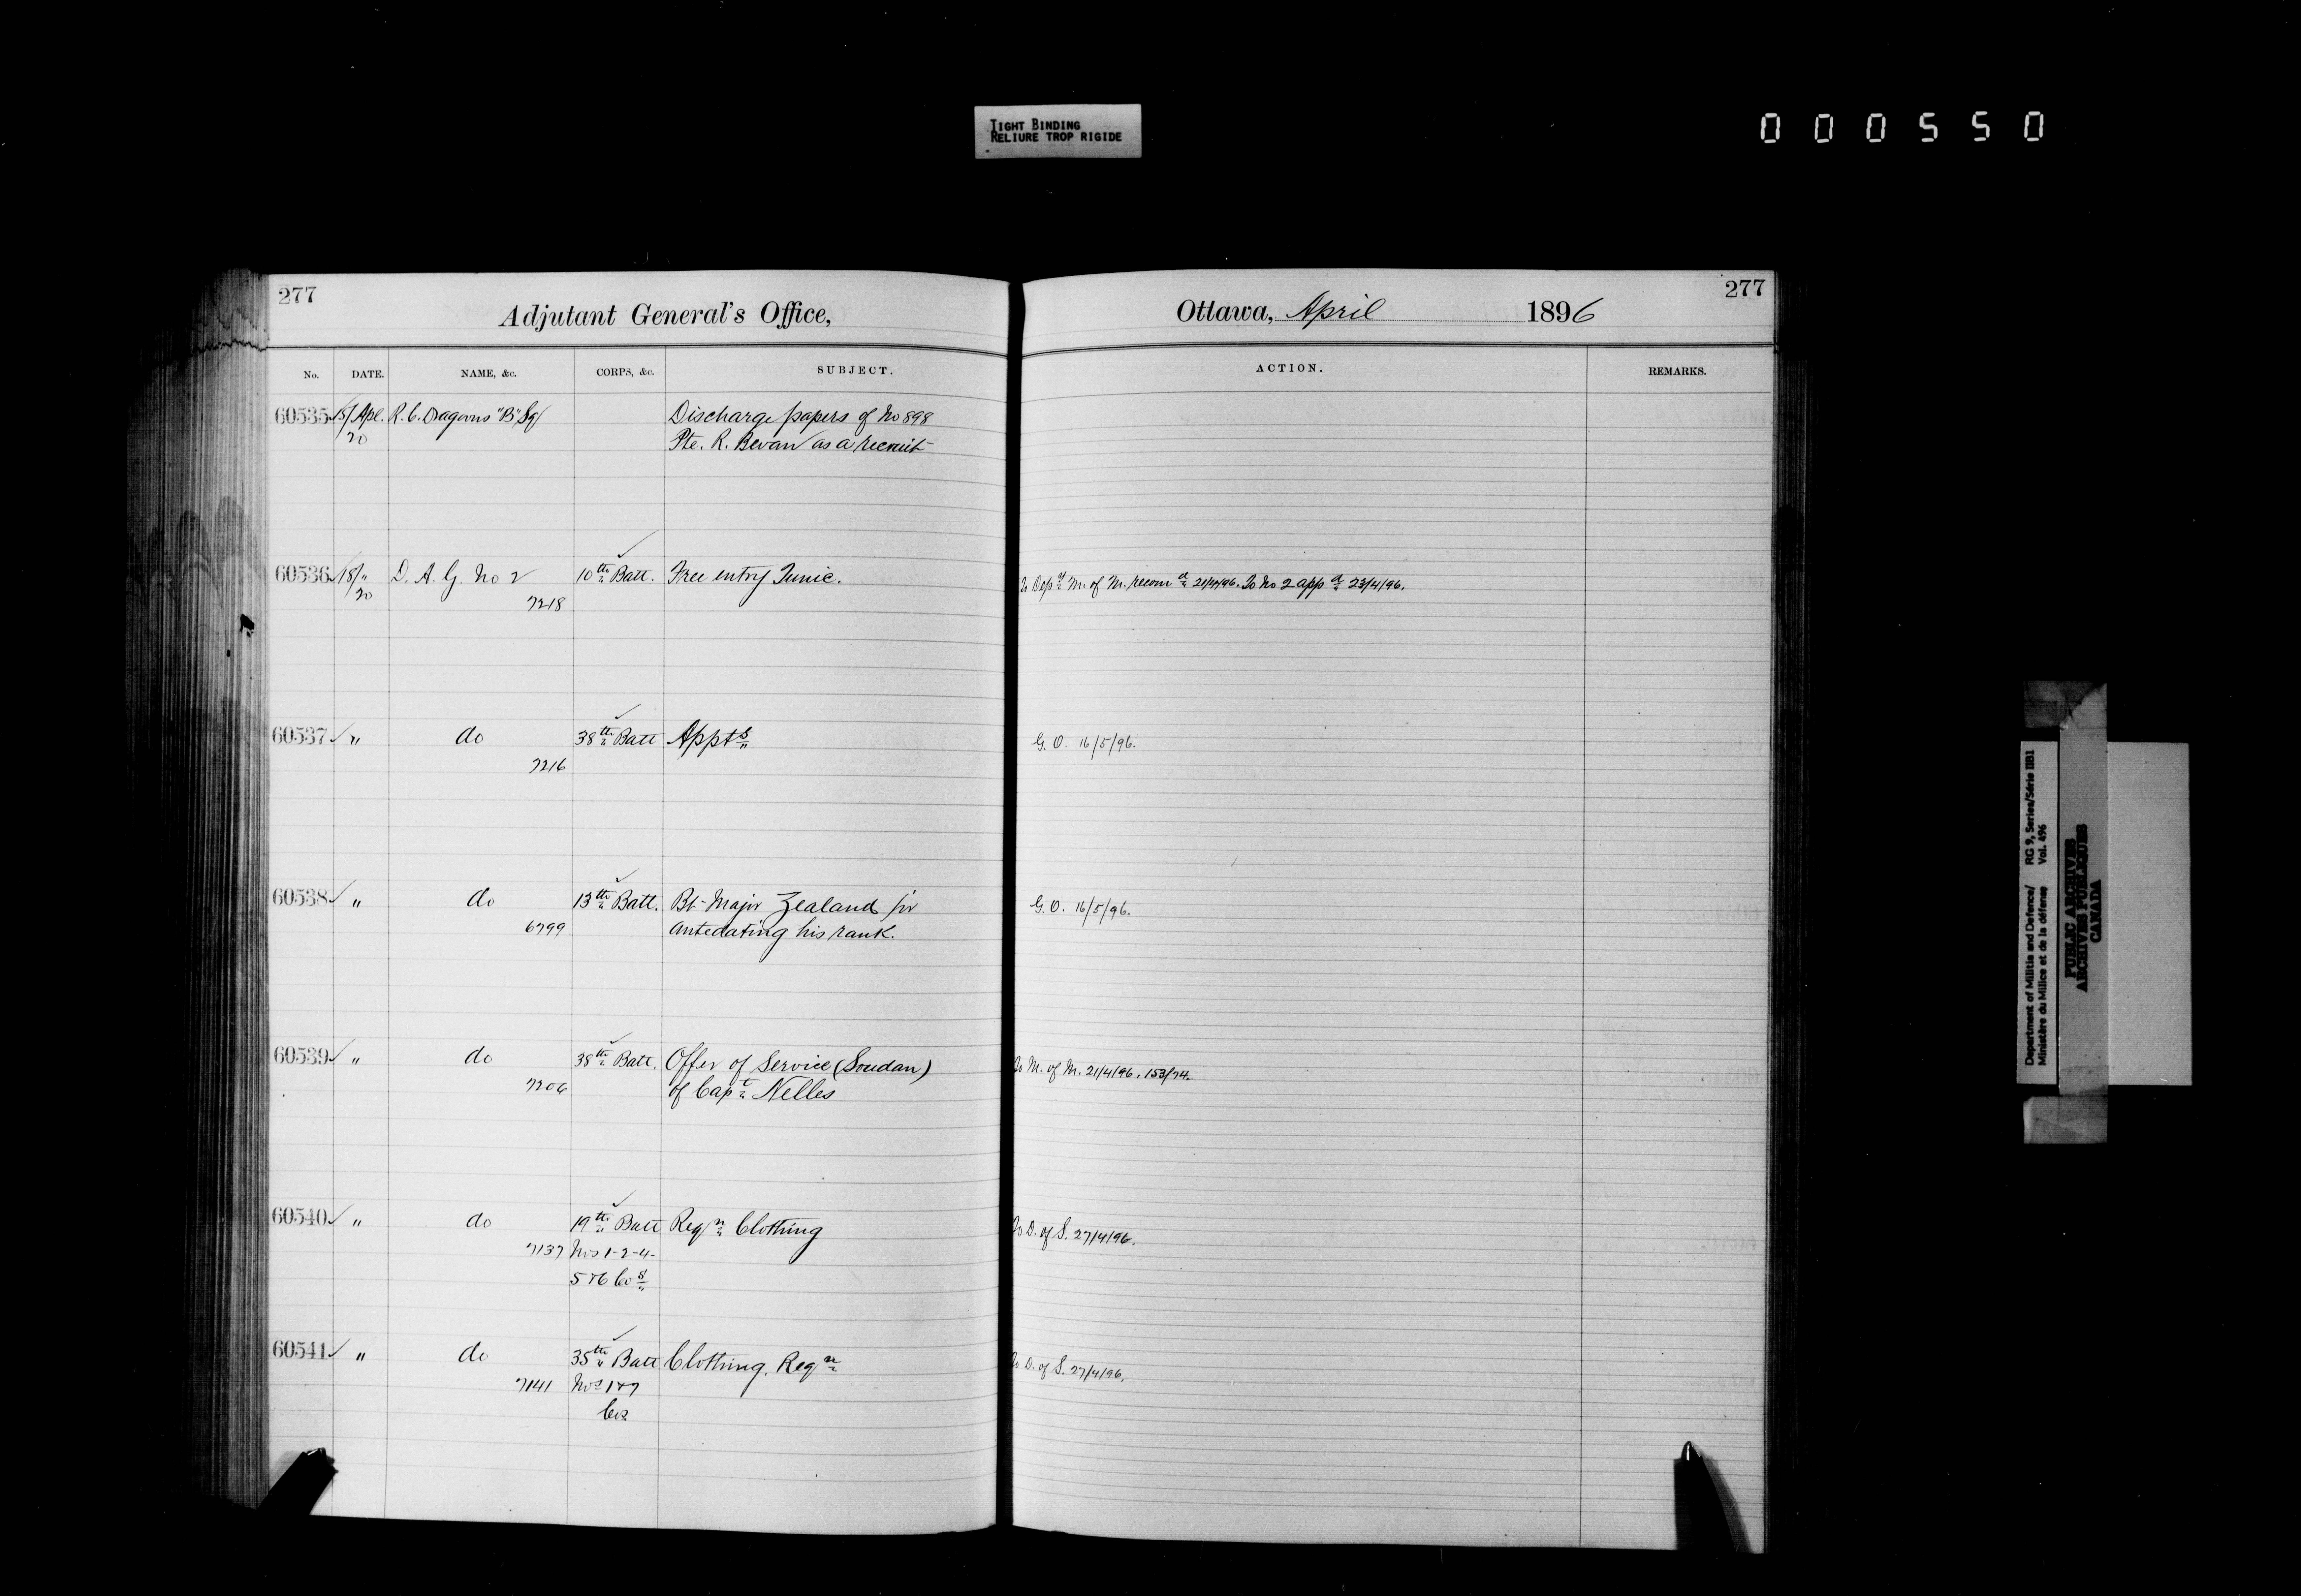 TIGHT BINDING
RELIURE TROP RIGIDE
000550
277
Adjutant General's Office,
Ottawa, April 1896
277
No. DATE. NAME, &c. CORPS, &c. SUBJECT. ACTION. REMARKS.
60535 15/Apl. R. C. Dragoons "B" Sq Discharge papers of No 898
20 Pte. R. Bevan as a recruit
60536 18/" D. A. G. No 2 10th Batt. Free entry Tunic. To Depy M. of M. recomd 21/4/96. To No 2 appd 23/4/96.
20 7218
60537 " do 38th Batt Appts G. O. 16/5/96.
7216
60538 " do 13th Batt. Bt-Major Zealand for G. O. 16/5/96.
6799 antedating his rank.
60539 " do 38th Batt. Offer of Service (Soudan) To M. of M. 21/4/96. 153/74.
7206 of Capt Nelles
60540 " do 19th Batt Reqn Clothing To D. of S. 27/4/96.
7137 Nos 1-2-4-
5 & 6 Cos
60541 " do 35th Batt Clothing Reqn To D. of S. 27/4/96.
7141 Nos 1 & 7
Cos
Department of Militia and Defence/ RG 9, Series/Série IIB1
Ministère du Milice et de la défense Vol. 496
PUBLIC ARCHIVES
ARCHIVES PUBLIQUES
CANADA